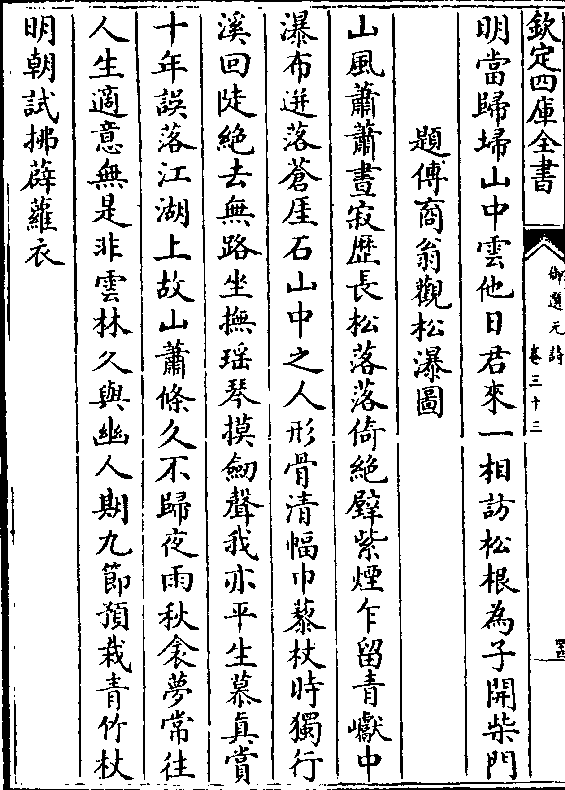 欽定四庫全書
御選元詩
卷三十三
明當歸埽山中雲他日君來一相訪松根為子開柴門
題傅商翁觀松瀑圖
山風蕭蕭晝寂歷長松落落倚絶壁紫煙乍留青巘中
瀑布迸落蒼厓石山中之人形骨清幅巾藜杖時獨行
溪回陡絶去無路坐撫瑶琴摸劒聲我亦平生慕真賞
十年誤落江湖上故山蕭條久不歸夜雨秋衾夢常往
人生適意無是非雲林久與幽人期九節預栽青竹杖
明朝試拂薜蘿衣